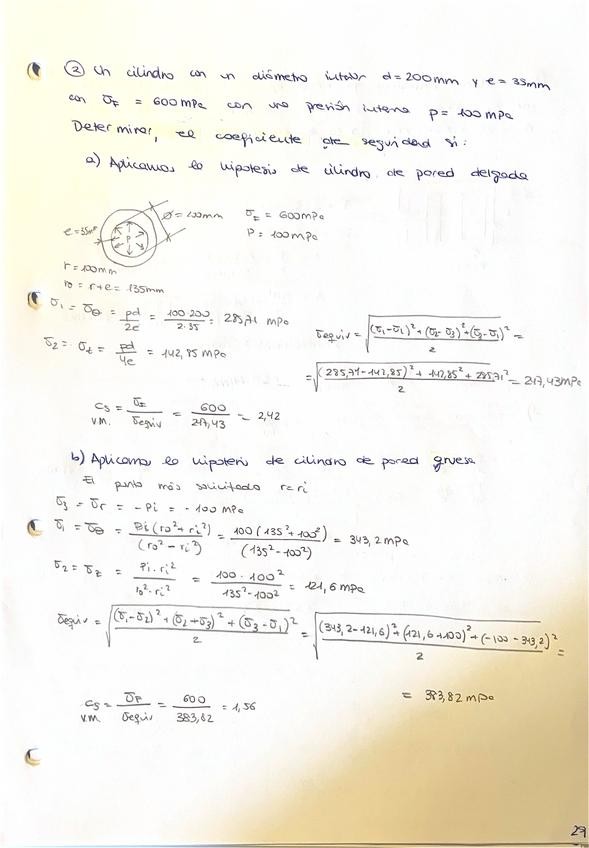 ② Un cilindro con un diámetro interior d = 200mm y e = 35mm
con σF = 600MPa con una presión interna p = 100MPa
Determinar, el coeficiente de seguridad si:
a) Aplicamos la hipotesis de cilindro de pared delgada
e=35mm P σF = 600MPa
P = 100MPa
r = 100mm
ro = r+e = 135mm
σ1 = σθ = pd/2e = 100·200/2·35 = 285,71 MPa
σ2 = σt = pd/4e = 142,85 MPa
σequiv = √((σ1-σ2)²+(σ2-σ3)²+(σ3-σ1)²/2) =
= √((285,71-142,85)² + 142,85² + 285,71²/2) = 247,43MPa
CS V.M. = σF/σequiv = 600/247,43 = 2,42
b) Aplicamos la hipotesis de cilindro de pared gruesa
El punto más solicitado r=ri
σ3 = σr = -Pi = -100 MPa
σ1 = σθ = Pi(ro²+ri²)/(ro²-ri²) = 100(135²+100²)/(135²-100²) = 343,2MPa
σ2 = σz = Pi·ri²/ro²-ri² = 100·100²/135²-100² = 121,6MPa
σequiv = √((σ1-σ2)²+(σ2+σ3)²+(σ3-σ1)²/2) = √((343,2-121,6)²+(121,6+100)²+(-100-343,2)²/2) =
= 383,82MPa
CS V.M. = σF/σequiv = 600/383,82 = 1,56
29